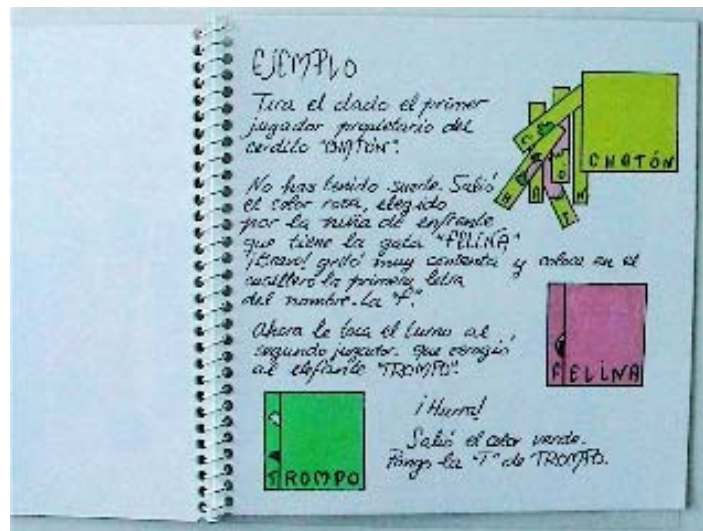 EJEMPLO
Tira el dado el primer
jugador propietario del
cerdito "CHATÓN".
CHATÓN
No has tenido suerte. Salió
el color rosa, elegido
por la niña de enfrente
que tiene la gata "FELINA"
¡Bravo! gritó muy contenta y coloca en el
casillero la primera letra
del nombre. La "F".
FELINA
Ahora le toca el turno al
segundo jugador. que escogió
al elefante "TROMPO".
¡Hurra!
Salió el color verde.
Pongo la "T" de TROMPO.
TROMPO